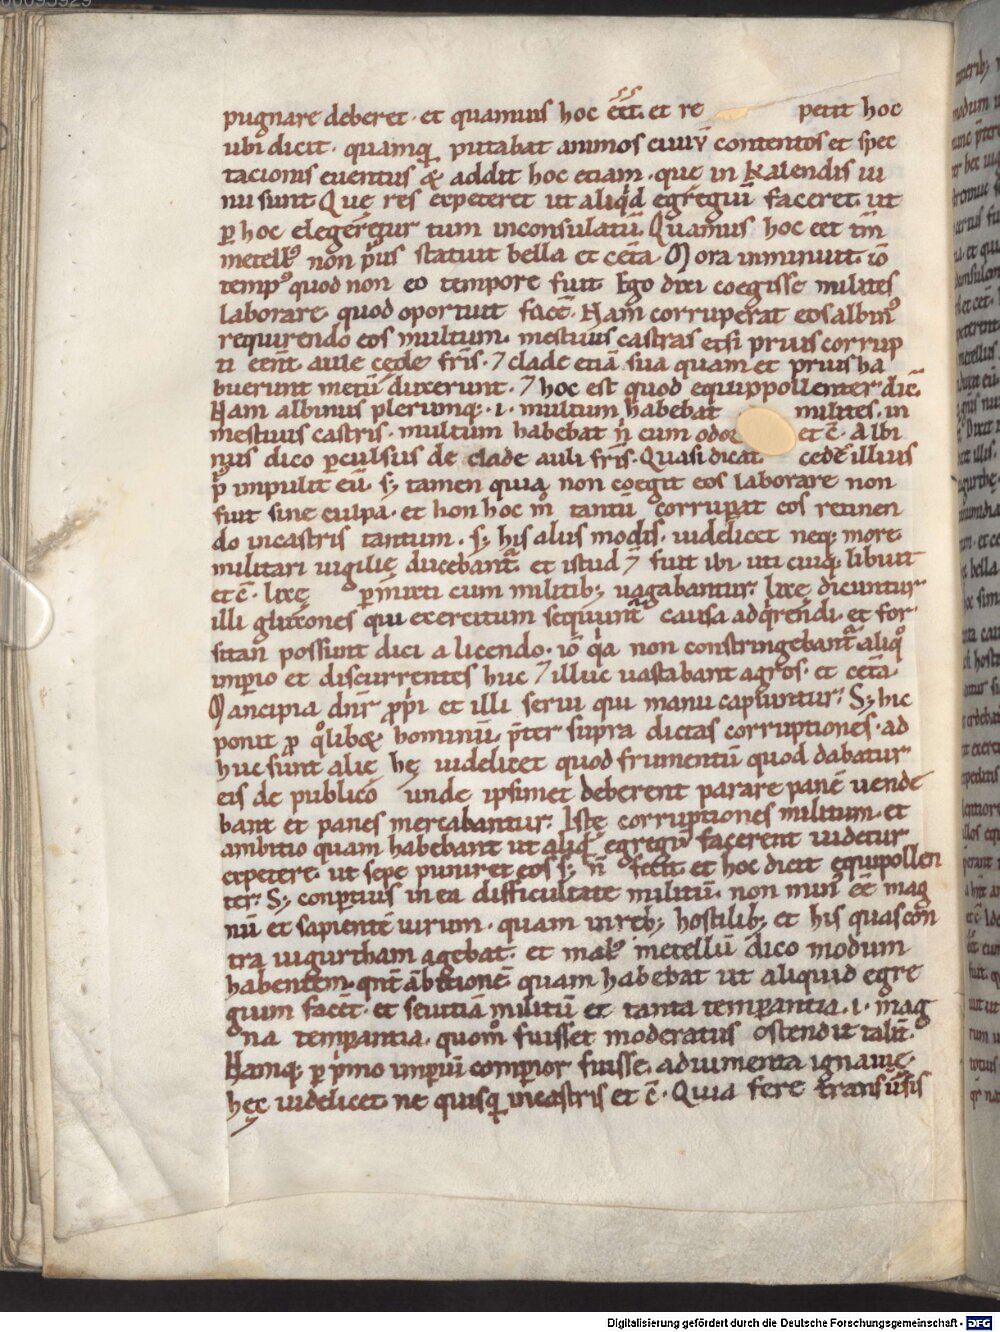 pugnare deberet · et quamuis hoc eēt et re petit hoc
ubi dicit · quamq̃ putabat animos ciuiū contentos et spec
tacionis euentus ⁊ addit hoc etiam · que in kalendis iu
nii sunt Que res expeteret ut aliqͥd egregiū faceret ut
p̱ hoc elegeretur tum inconsulatū. Quamuis hoc eēt tm̄
metellꝰ non pͥus statuit bella et cetā. Mora inminuit iō
tempꝰ quod non eo tempore fuit Ego dixi coegisse milites
laborare quod oportuit facē. Nam corruperat eos albinꝰ
requirendo eos multum. mestiuis castris etsi prius corrup
ti eēnt aule cęde fr̄is · ⁊ clade etiā sua quam et prius ha
buerunt metū duxerunt · ⁊ hoc est quod equippollenter dic̄.
Nam albinus plerumq; · i · multum habebat milites · in
mestiuis castris · multum habebat n̄ cum odor et c̄ · Albi
nus dico p̱culsus de clade auli fr̄is. Quasi dicat cedē illius
p̄ impulit eū. s; tamen quia non coegit eos laborare non
fuit sine culpa · et non hoc mͦ tantū corrupat eos retinen
do incastris tantum · s; his alius modis · uidelicet neq; more
militari uigilię ducebantᷓ et istud ⁊ fuit ibi · uti cuiq; libuit
et c̄ · lixę p̱mixti cum militib; uagabantur. lixę dicuntur
illi glutones qui exercitum sequunt᷑ causa adqͥrendi · et for
sitan possunt dici a licendo · iō qͥa non constringebant᷑ aliqͦ
imperio et discurrentes huc ⁊ illuc uastabant agros · et cetā.
Mancipia dn̄r p̱pͥ et illi serui qui manu capiuntur. S; hic
ponit p̱ qͦlibꝫ hominū. p̄ter supra dictas corruptiones · ad
huc sunt alię hę uidelicet quod frumentū quod dabatur
eis de publico unde ipsimet deberent parare panē uende
bant et panes mercabantur. Istę corruptiones militum · et
ambitio quam habebant ut aliqͥd egregiū facerent uidetur
expetere · ut sepe puniret eos s; n̄ fecit · et hoc dicit equipollen
ter · S; conp̱tius in ea difficultate militū · non minꝰ eē mag
nū et sapientē uirum · quam in reb; hostilib; et his quas con
tra iugurtham agebat · et maloꝝ metellū dico modum
habentem · qn̄t ābitionē quam habebat ut aliquid egre
gium facēt · et seuitiā militū et tanta temperantia · i · mag
na temperantia · quomͦ fuisset moderatus ostendit talit̄.
Namq; p̱ pͥmo imperiū comperior fuisse · adiumenta ignauię ·
hęc uidelicet ne quisq̃ incastris et c̄ · Quia fere transuersis
Digitalisierung gefördert durch die Deutsche Forschungsgemeinschaft - DFG